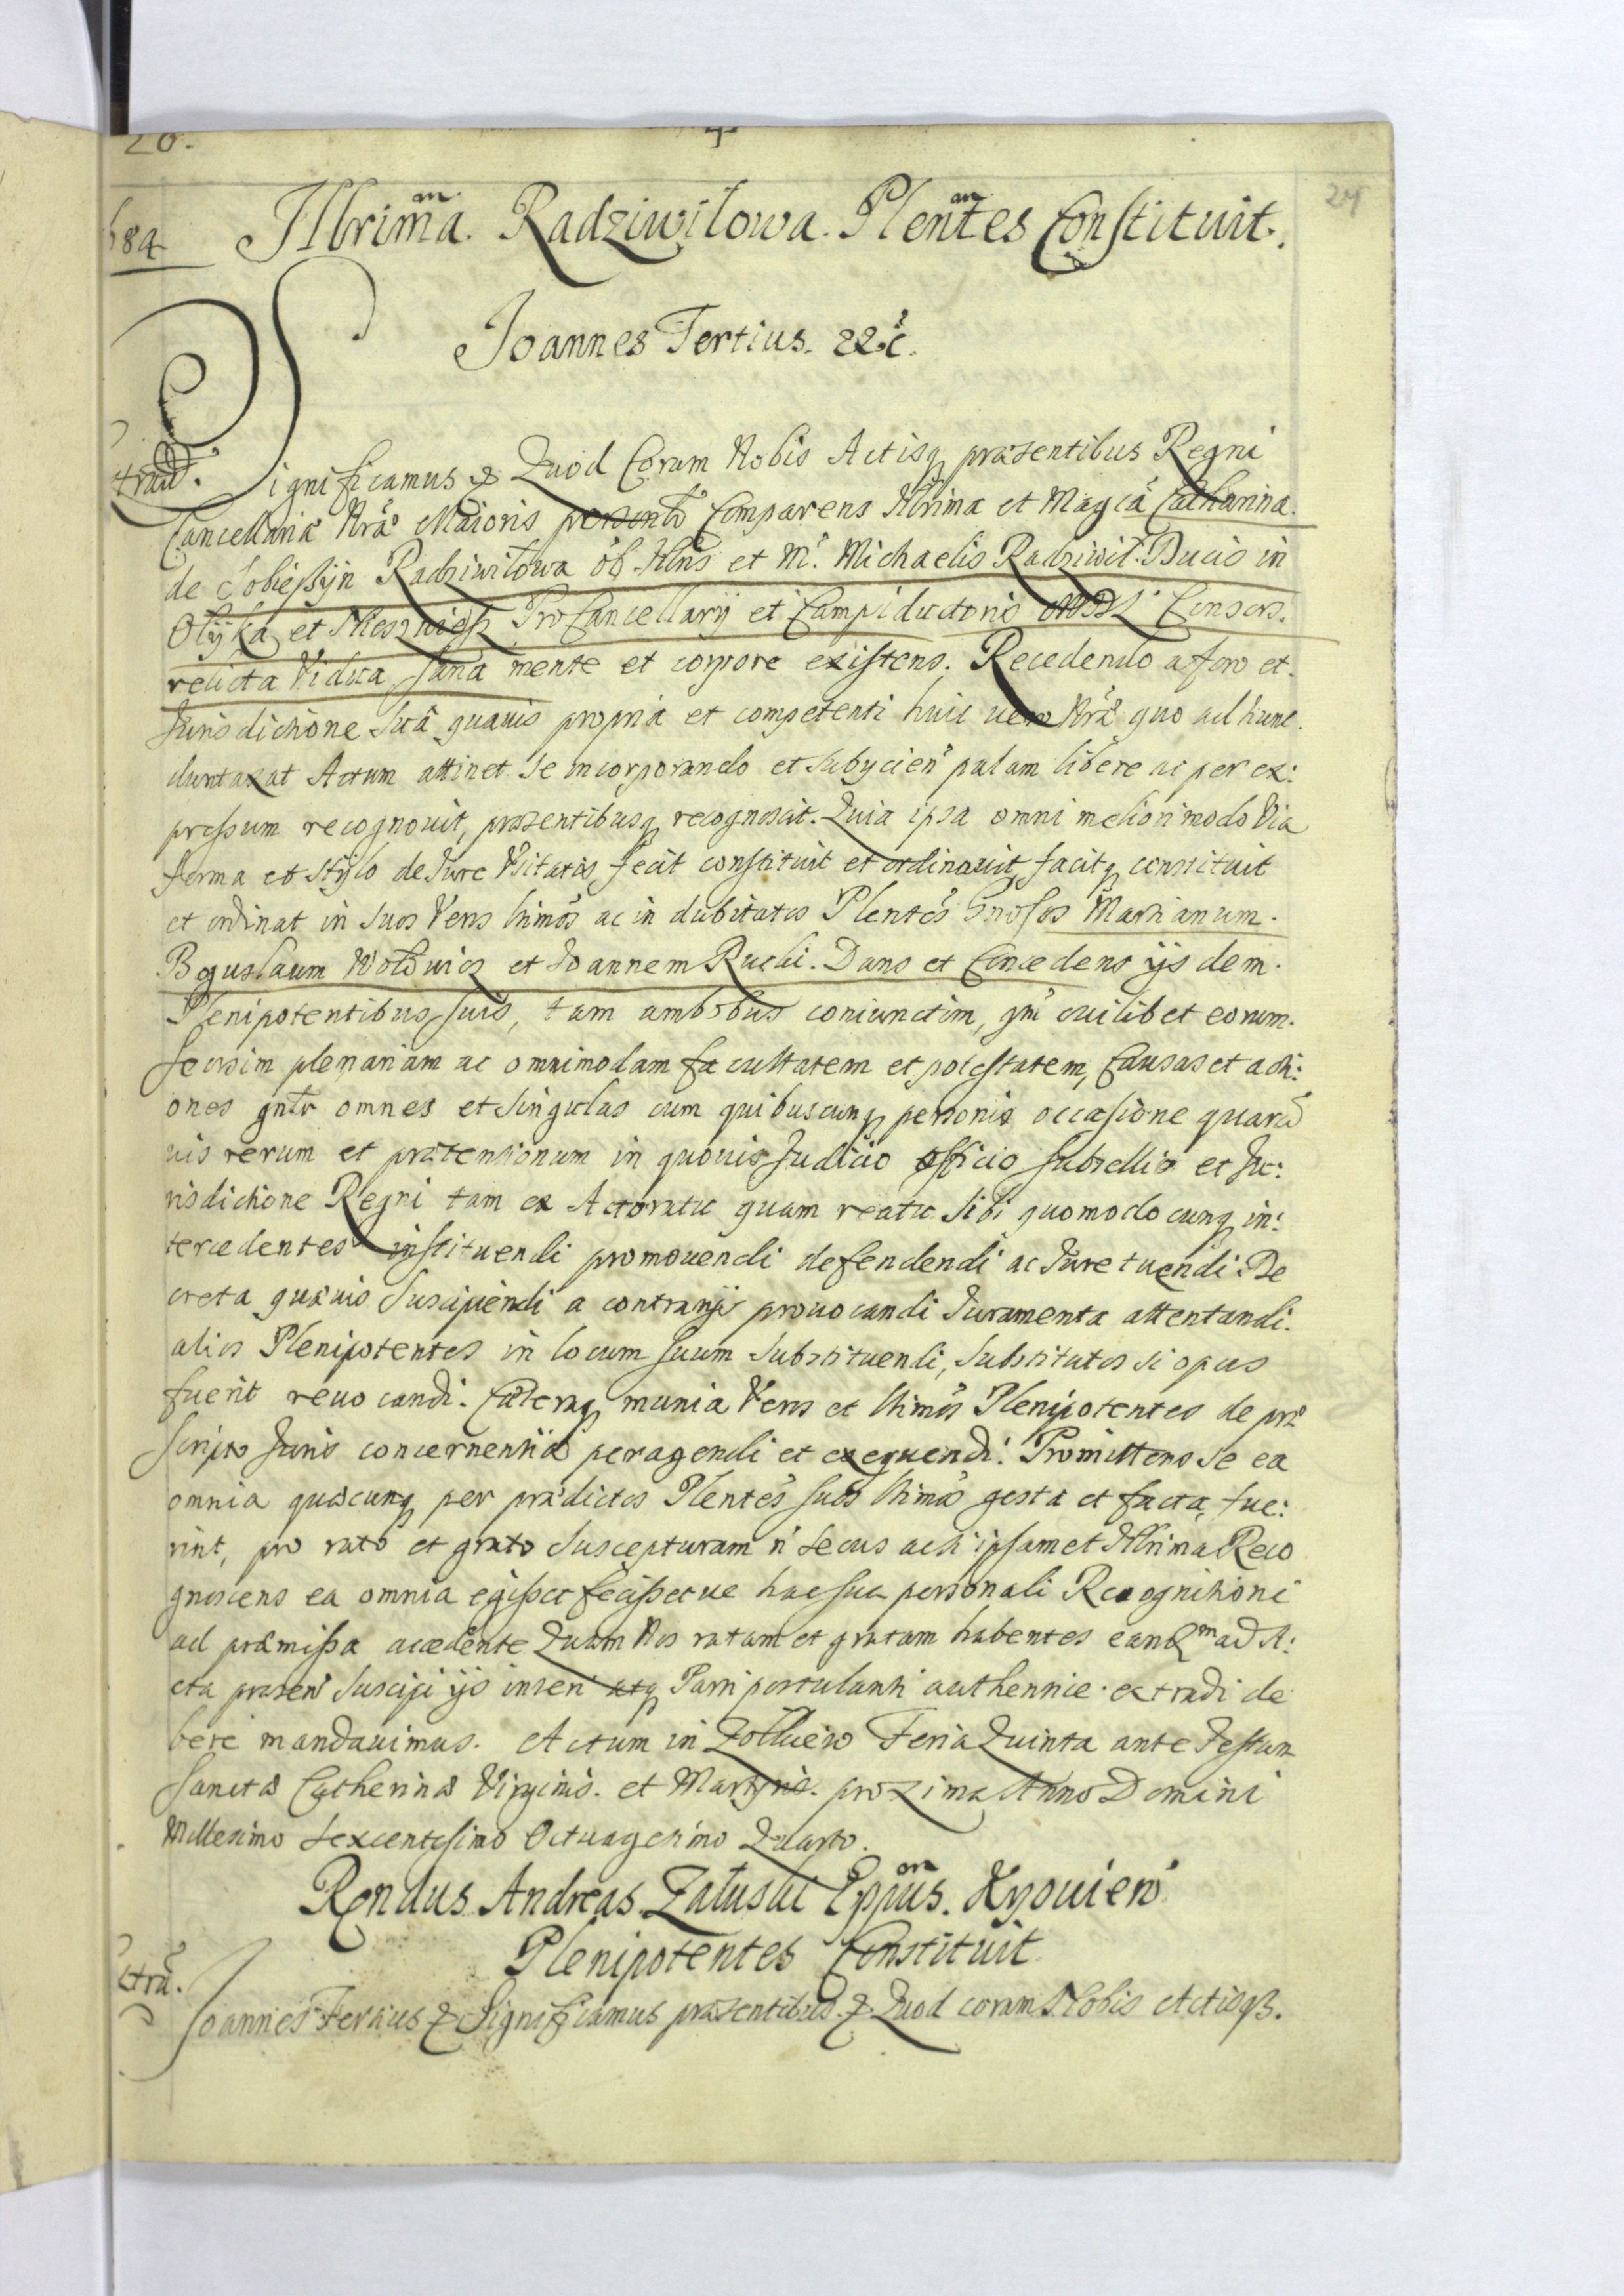 20.
24
684
Illrima. Radziwiłowa. Plentes Constituit.
Joannes Tertius. &&c.
Significamus & Quod Coram Nobis Actisq præsentibus Regni
Cancellariæ Nræ Maioris personlr Comparens Illrima et Magca Catharina.
de Sobießyn Radziwiłowa olb Illris et M. Michaelis Radziwił. Ducis in
Ołyka et Nieswiesz ProCancellarij et Campiductoris MDL Consors.
relicta Vidua, sana mente et corpore existens. Recedendo a foro et.
Jurisdictione Suâ quauis propriâ et competenti huic vero Nræ quo ad hunc.
duntaxat Actum attinet. Se incorporando et Subycien palam libere ac per ex:
pressum recognouit, præsentibusq recognoscit. Quia ipsa omni meliori modo Via
forma et Stylo de Jure Vsitatis fecit constituit et ordinauit, facitq constituit
et ordinat in Suos Veros ltimos ac in dubitatos Plentes Gnosos Marianum.
Bogusłaum Wołowicz et Joannem Rucki. Dans et Concedens ijs dem.
Plenipotentibus Suis, tam ambobus coniunctim, qm cuilibet eorum.
Seorsim plenariam ac omnimodam facultatem et potestatem, Causas et acti:
ones gntr omnes et Singulas cum quibuscunq personis occasione quaru
uis rerum et prætensionum in quouis Judicio Officio Subsellio et Ju:
risdictione Regni tam ex Actoratu quam reatu Sibi quomodo cunq in:
tercedentes instituendi promouendi defendendi ac Jure tuendi. De
creta quæuis Suscipiendi a contrarijs prouocandi Juramenta attentandi.
alios Plenipotentes in locum Suum Substituendi, Substitutos si opus
fuerit reuocandi. Cæteraq munia Veros et ltimos Plenipotentes de præ
scripto Juris concernentia peragendi et exequendi. Promittens se ea
omnia quæcunq per prædictos Plentes Suos ltimos gesta et facta, fue:
rint, pro rato et grato Suscepturam n secus acsi ipsamet Illrima Reco
gnoscens ea omnia egisset fecissetue hac Sua personali Recognitione
ad præmissa accedente Quam Nos ratam et gratam habentes eandm ad A:
cta præsen Suscipi ijs inseri atq Parti postulanti authentice extradi de
bere mandauimus. Actum in Zołkiew Feria Quinta ante Festum
Sanctæ Catherinæ Virginis. et Martyris. proxima Anno Domini
Millesimo Sexcentesimo Octuagesimo Quarto.
Rendus Andreas Załuski Eppus. Kyouien
Plenipotentes Constituit
Joannes Tertius & Significamus præsentibus. & Quod coram Nobis Actisq3.